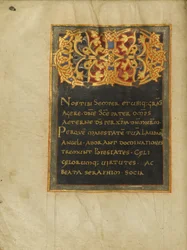 NOS TIBI SEMPER ET UBIQ; GRAS
AGERE DNE SCE PATER OMPS
AETERNE DS PER XPM DNM NRM
PER QUEM MAIESTATE TUA LAUDANT
ANGELI ADORANT DOMINATIONES
TREMUNT POTESTATES CAELI
CAELORUMQ; VIRTUTES AC
BEATA SERAPHIM SOCIA